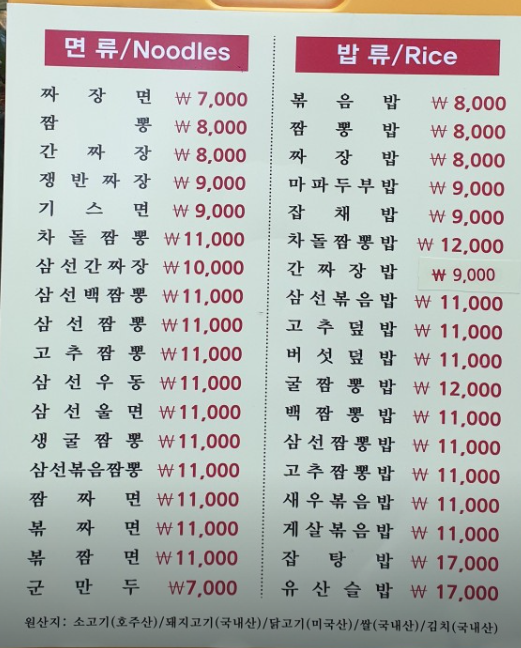 면 류/Noodles
짜 장 면 ₩ 7,000
짬 뽕 ₩ 8,000
간 짜 장 ₩ 8,000
쟁 반 짜 장 ₩ 9,000
기 스 면 ₩ 9,000
차 돌 짬 뽕 ₩ 11,000
삼 선 간 짜 장 ₩ 10,000
삼 선 백 짬 뽕 ₩ 11,000
삼 선 짬 뽕 ₩ 11,000
고 추 짬 뽕 ₩ 11,000
삼 선 우 동 ₩ 11,000
삼 선 울 면 ₩ 11,000
생 굴 짬 뽕 ₩ 11,000
삼선볶음짬뽕 ₩ 11,000
짬 짜 면 ₩ 11,000
볶 짜 면 ₩ 11,000
볶 짬 면 ₩ 11,000
군 만 두 ₩7,000
밥 류/Rice
볶 음 밥 ₩ 8,000
짬 뽕 밥 ₩ 8,000
짜 장 밥 ₩ 8,000
마 파 두 부 밥 ₩ 9,000
잡 채 밥 ₩ 9,000
차 돌 짬 뽕 밥 ₩ 12,000
간 짜 장 밥 ₩ 9,000
삼 선 볶 음 밥 ₩ 11,000
고 추 덮 밥 ₩ 11,000
버 섯 덮 밥 ₩ 11,000
굴 짬 뽕 밥 ₩ 12,000
백 짬 뽕 밥 ₩ 11,000
삼 선 짬 뽕 밥 ₩ 11,000
고 추 짬 뽕 밥 ₩ 11,000
새 우 볶 음 밥 ₩ 11,000
게 살 볶 음 밥 ₩ 11,000
잡 탕 밥 ₩ 17,000
유 산 슬 밥 ₩ 17,000
원산지: 소고기(호주산)/돼지고기(국내산)/닭고기(미국산)/쌀(국내산)/김치(국내산)